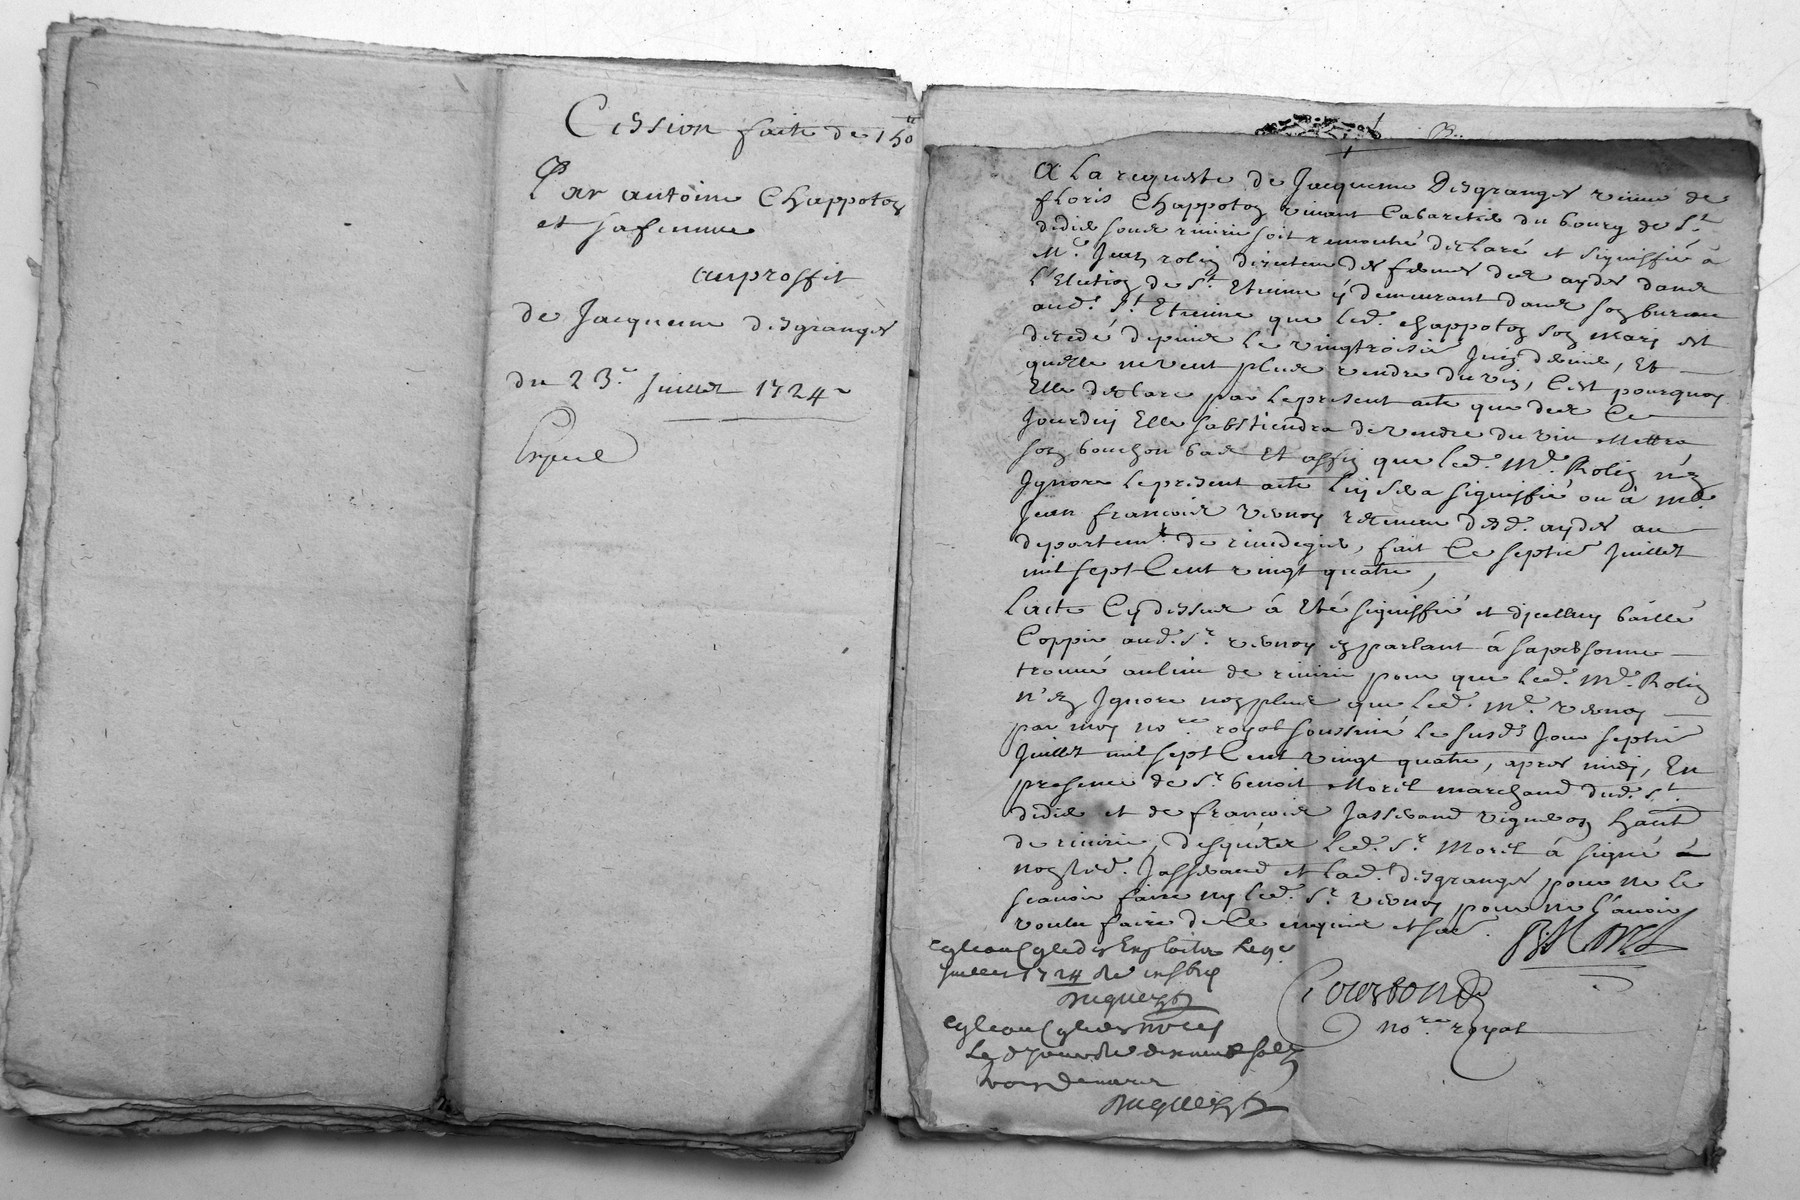 Cession faite de 150ᵗᵗ
Par antoine Chappotoz
et sa femme
auproffit
de Jacqueme desgranges
du 23.e Juillet 1724
Expedié
B..
A La requeste de Jacqueme Desgranges veuve de
floris Chappotoz vivant Cabaretier du bourg de St
didier sous riverie soit remontré declaré et signiffié à
Mr. Jean robin directeur des fermes des aydes dans
l'Election de St. Etienne y demeurant dans son bureau
aud. St. Etienne que led. chappotoz son mary est
decedé depuis le vingtroisie Juin dernier, Et
quelle ne veut plus vendre du vin, C'est pourquoy
Elle declare par le present acte que des Ce
Jourdhuy Elle s'abstiendra de vendre du vin mettra
son bouchon bas Et affin que led. Mr. Robin n'en
Ignore le present acte luy sera signiffié ou à Mr.
Jean françois vernay receveur desd. aydes au
departemt. de rivedegier, fait Ce septie Juillet
mil sept Cent vingt quatre,
L'acte Cy dessus à Eté signiffié et d'jcelluy baillé
Coppie aud. Sr. vernay en parlant à sa personne
trouvé au lieu de riverie pour que led. Mr. Robin
n'en Ignore non plus que led. Mr. vernay
par moy nore. royal soussigné le susd. Jour septie
Juillet mil sept Cent vingt quatre, apres midy, En
presence de Sr. benoit Morel marchand dud. St.
didier et de françois Jasserand vigneron hault
de riverie, desquels led. Sr. Morel à signé &
non led. Jasserand et lad. desgranges pour ne le
scavoir faire ny led. Sr. vernay pour ne l'avoir
voulu faire de Ce enquis et so.
B. Morel
Juillet 1724
Courbon
nore. royal